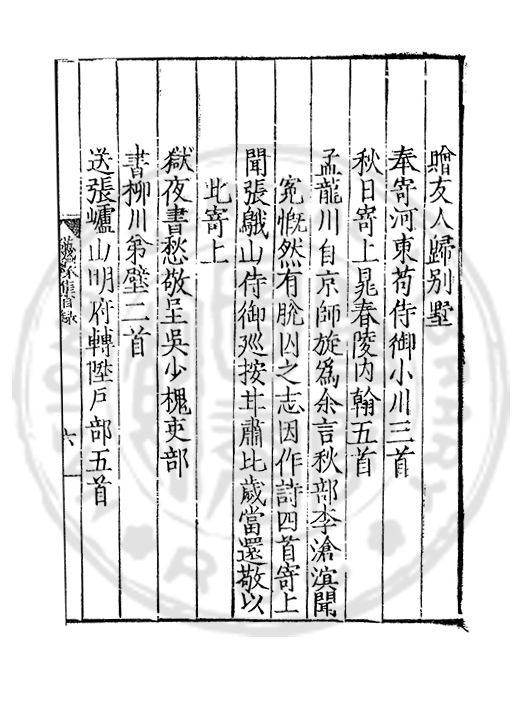 贈友人歸别墅
奉寄河東苟侍御小川三首
秋日寄上晁春陵内翰五首
孟龍川自京師旋爲余言秋部李滄溟聞
寃慨然有脫囚之志因作詩四首寄上
聞張鶃山侍御廵按甘肅比歲當還敬以
此寄上
獄夜書愁敬呈吳少槐吏部
書柳川第壁二首
送張嶇山明府轉陞戶部五首
集目録
六